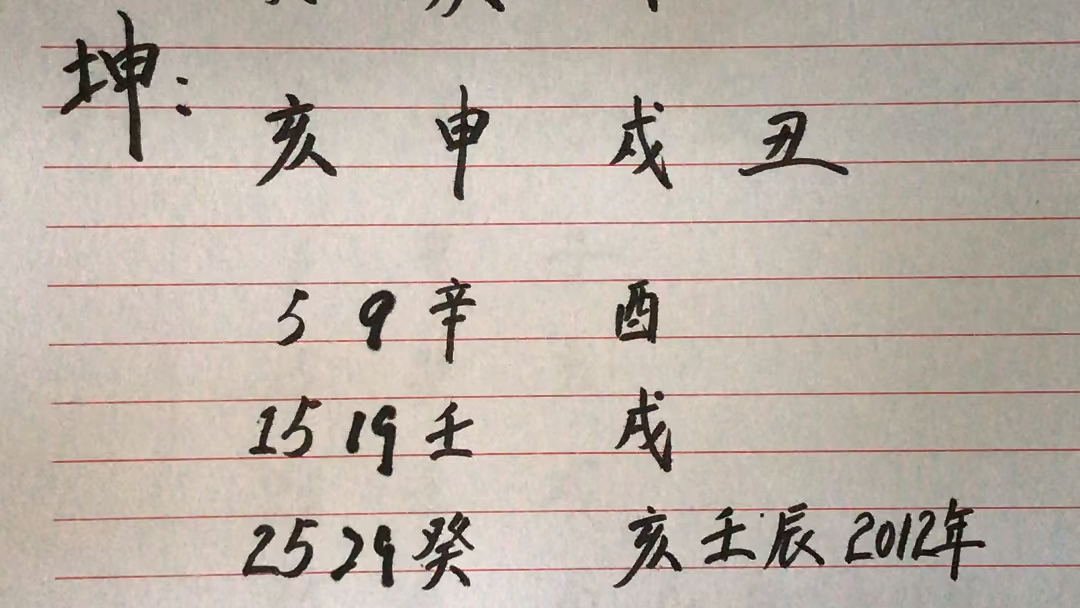 坤:
亥 申 戌 丑
5 9 辛 酉
15 19 壬 戌
25 29 癸 亥 壬辰 2012年